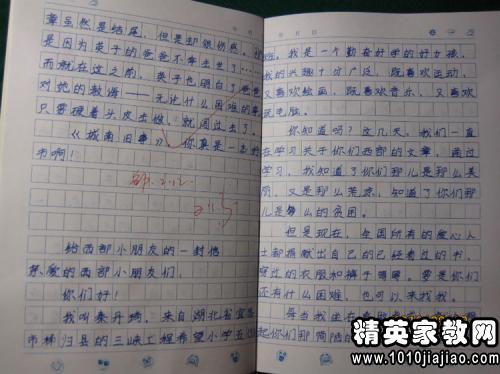 章虽然是结尾，但是却很伤感。
是因为英子的爸爸不幸去世了
而就在这之前，英子也明白了爸爸
对她的教诲——无论什么困难的事
只要硬着头皮去做，就闯过去了。
《城南旧事》，你真是一本好
书啊！
给西部小朋友的一封信
亲爱的西部小朋友们，
你们好！
我叫秦丹琦，来自湖北省宜昌
市秭归县的三峡工程希望小学五
我是一个勤奋好学的好女孩，
我的兴趣十分广泛，既喜欢运动，
又喜欢绘画，既喜欢音乐，又喜欢
玩电脑。
你知道吗？这几天，我们一直
在学习关于你们西部的文章，通过
学习，我知道了你们那儿是那么美
丽，又是那么荒凉，知道了你们那
儿是多么的贫困。
但是现在，全国所有的爱心人
士都捐献出自己的已经看过的书，
穿过的衣服和裤子
还有什么困难，也可以来找我。
每当我坐在
起你们那简陋的
精英家教网
www.1010jiajiao.com